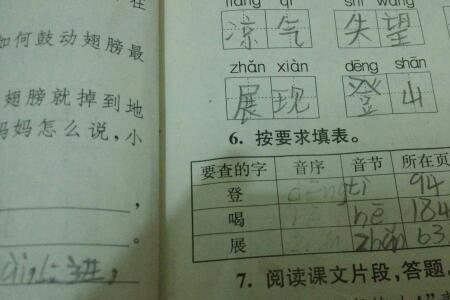 在
如何鼓动翅膀最
翅膀就掉到地
妈妈怎么说，小
，
。
进，
liáng qì shī wàng
凉气 失望
zhǎn xiàn dēng shān
展现 登山
6. 按要求填表。
要查的字 音序 音节 所在页
登 94
喝 hē 184
展 zhǎn 63
7. 阅读课文片段，答题。